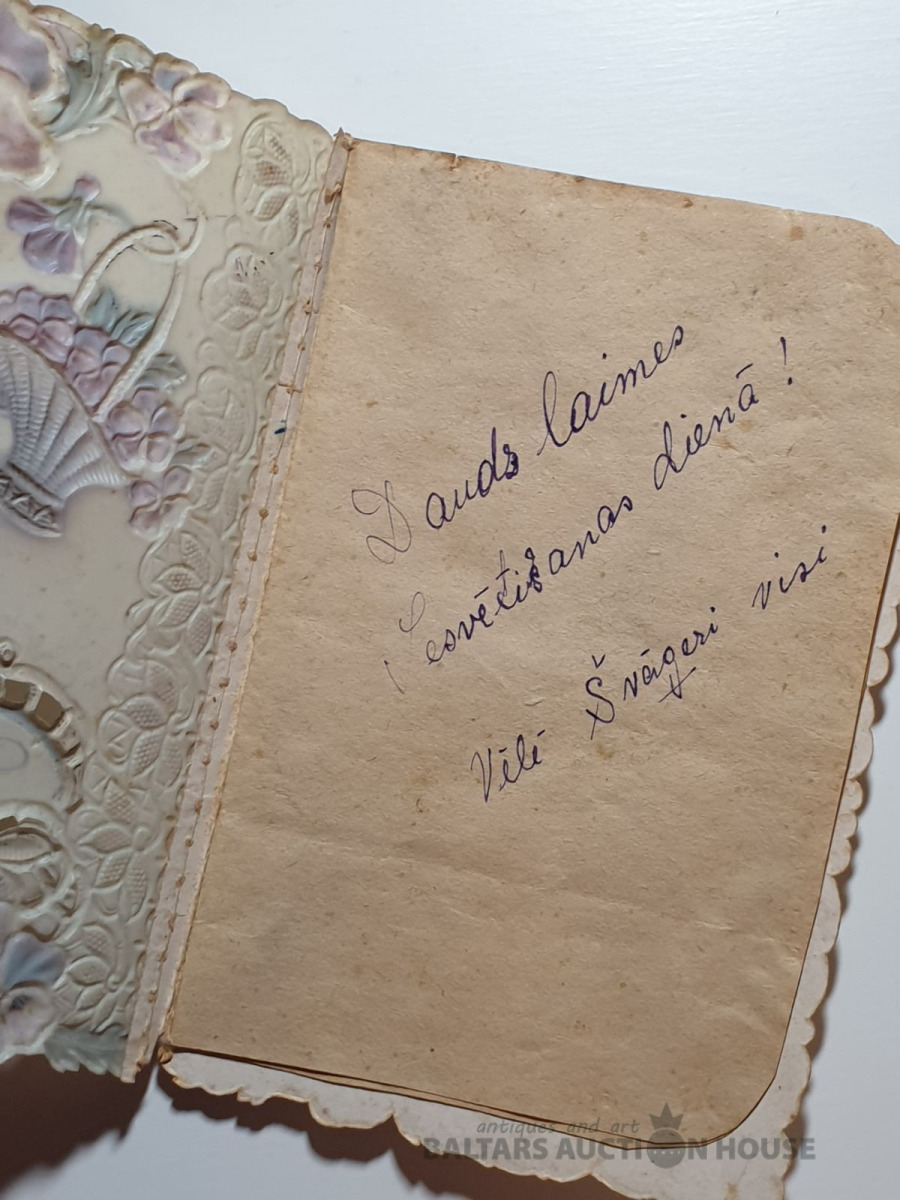 Daudz laimes
Iesvētīšanas dienā!
Vēlē Švāgeri visi
antiques and art
BALTARS AUCTION HOUSE